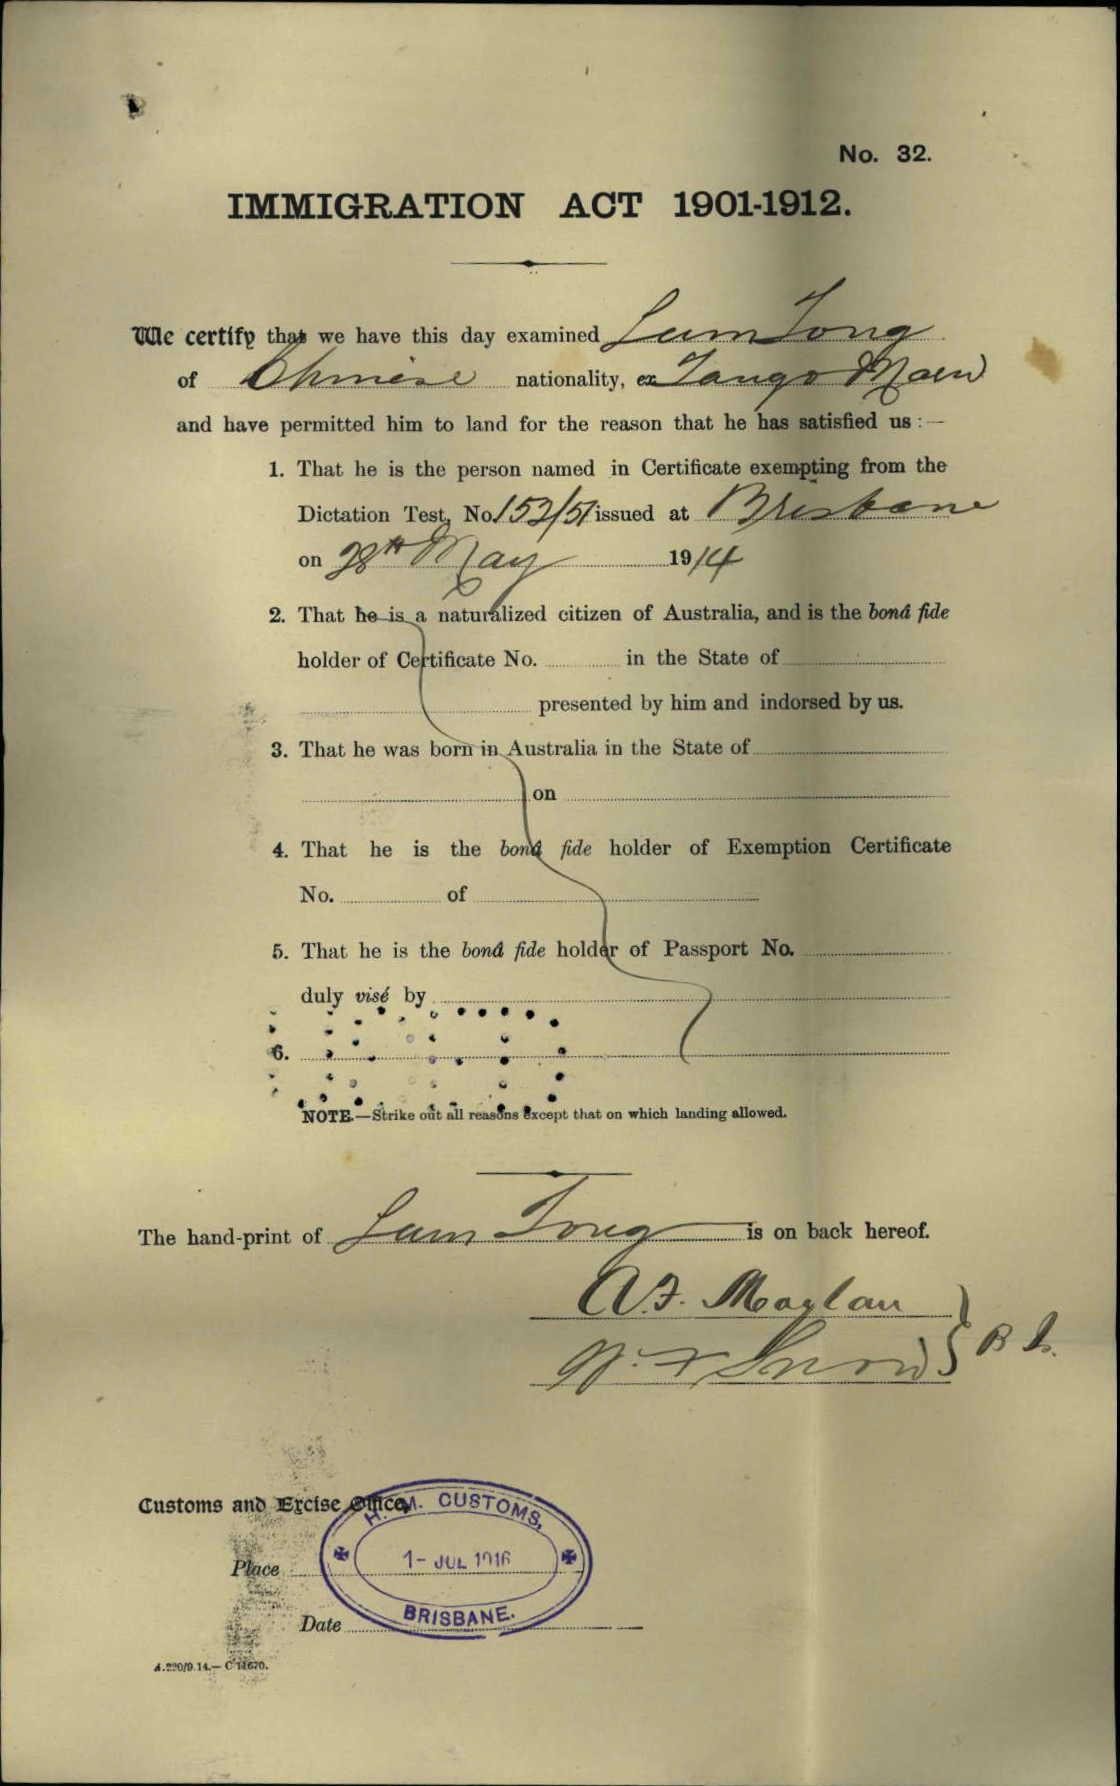 No. 32.
IMMIGRATION ACT 1901-1912.
We certify that we have this day examined Lum Tong
of Chinese nationality, ex Tango Maru
and have permitted him to land for the reason that he has satisfied us :—
1. That he is the person named in Certificate exempting from the
Dictation Test, No. 152/51 issued at Brisbane
on 28th May 1914
2. That he is a naturalized citizen of Australia, and is the bonâ fide
holder of Certificate No. in the State of
presented by him and indorsed by us.
3. That he was born in Australia in the State of
on
4. That he is the bonâ fide holder of Exemption Certificate
No. of
5. That he is the bonâ fide holder of Passport No.
duly visé by
6.
NOTE.—Strike out all reasons except that on which landing allowed.
The hand-print of Lum Tong is on back hereof.
A.F. Maylan
W. F Snow } B I.
Customs and Excise Office,
H. M. CUSTOMS,
Place 1- JUL 1916
BRISBANE.
Date
A.220/9.14.— C 11670.